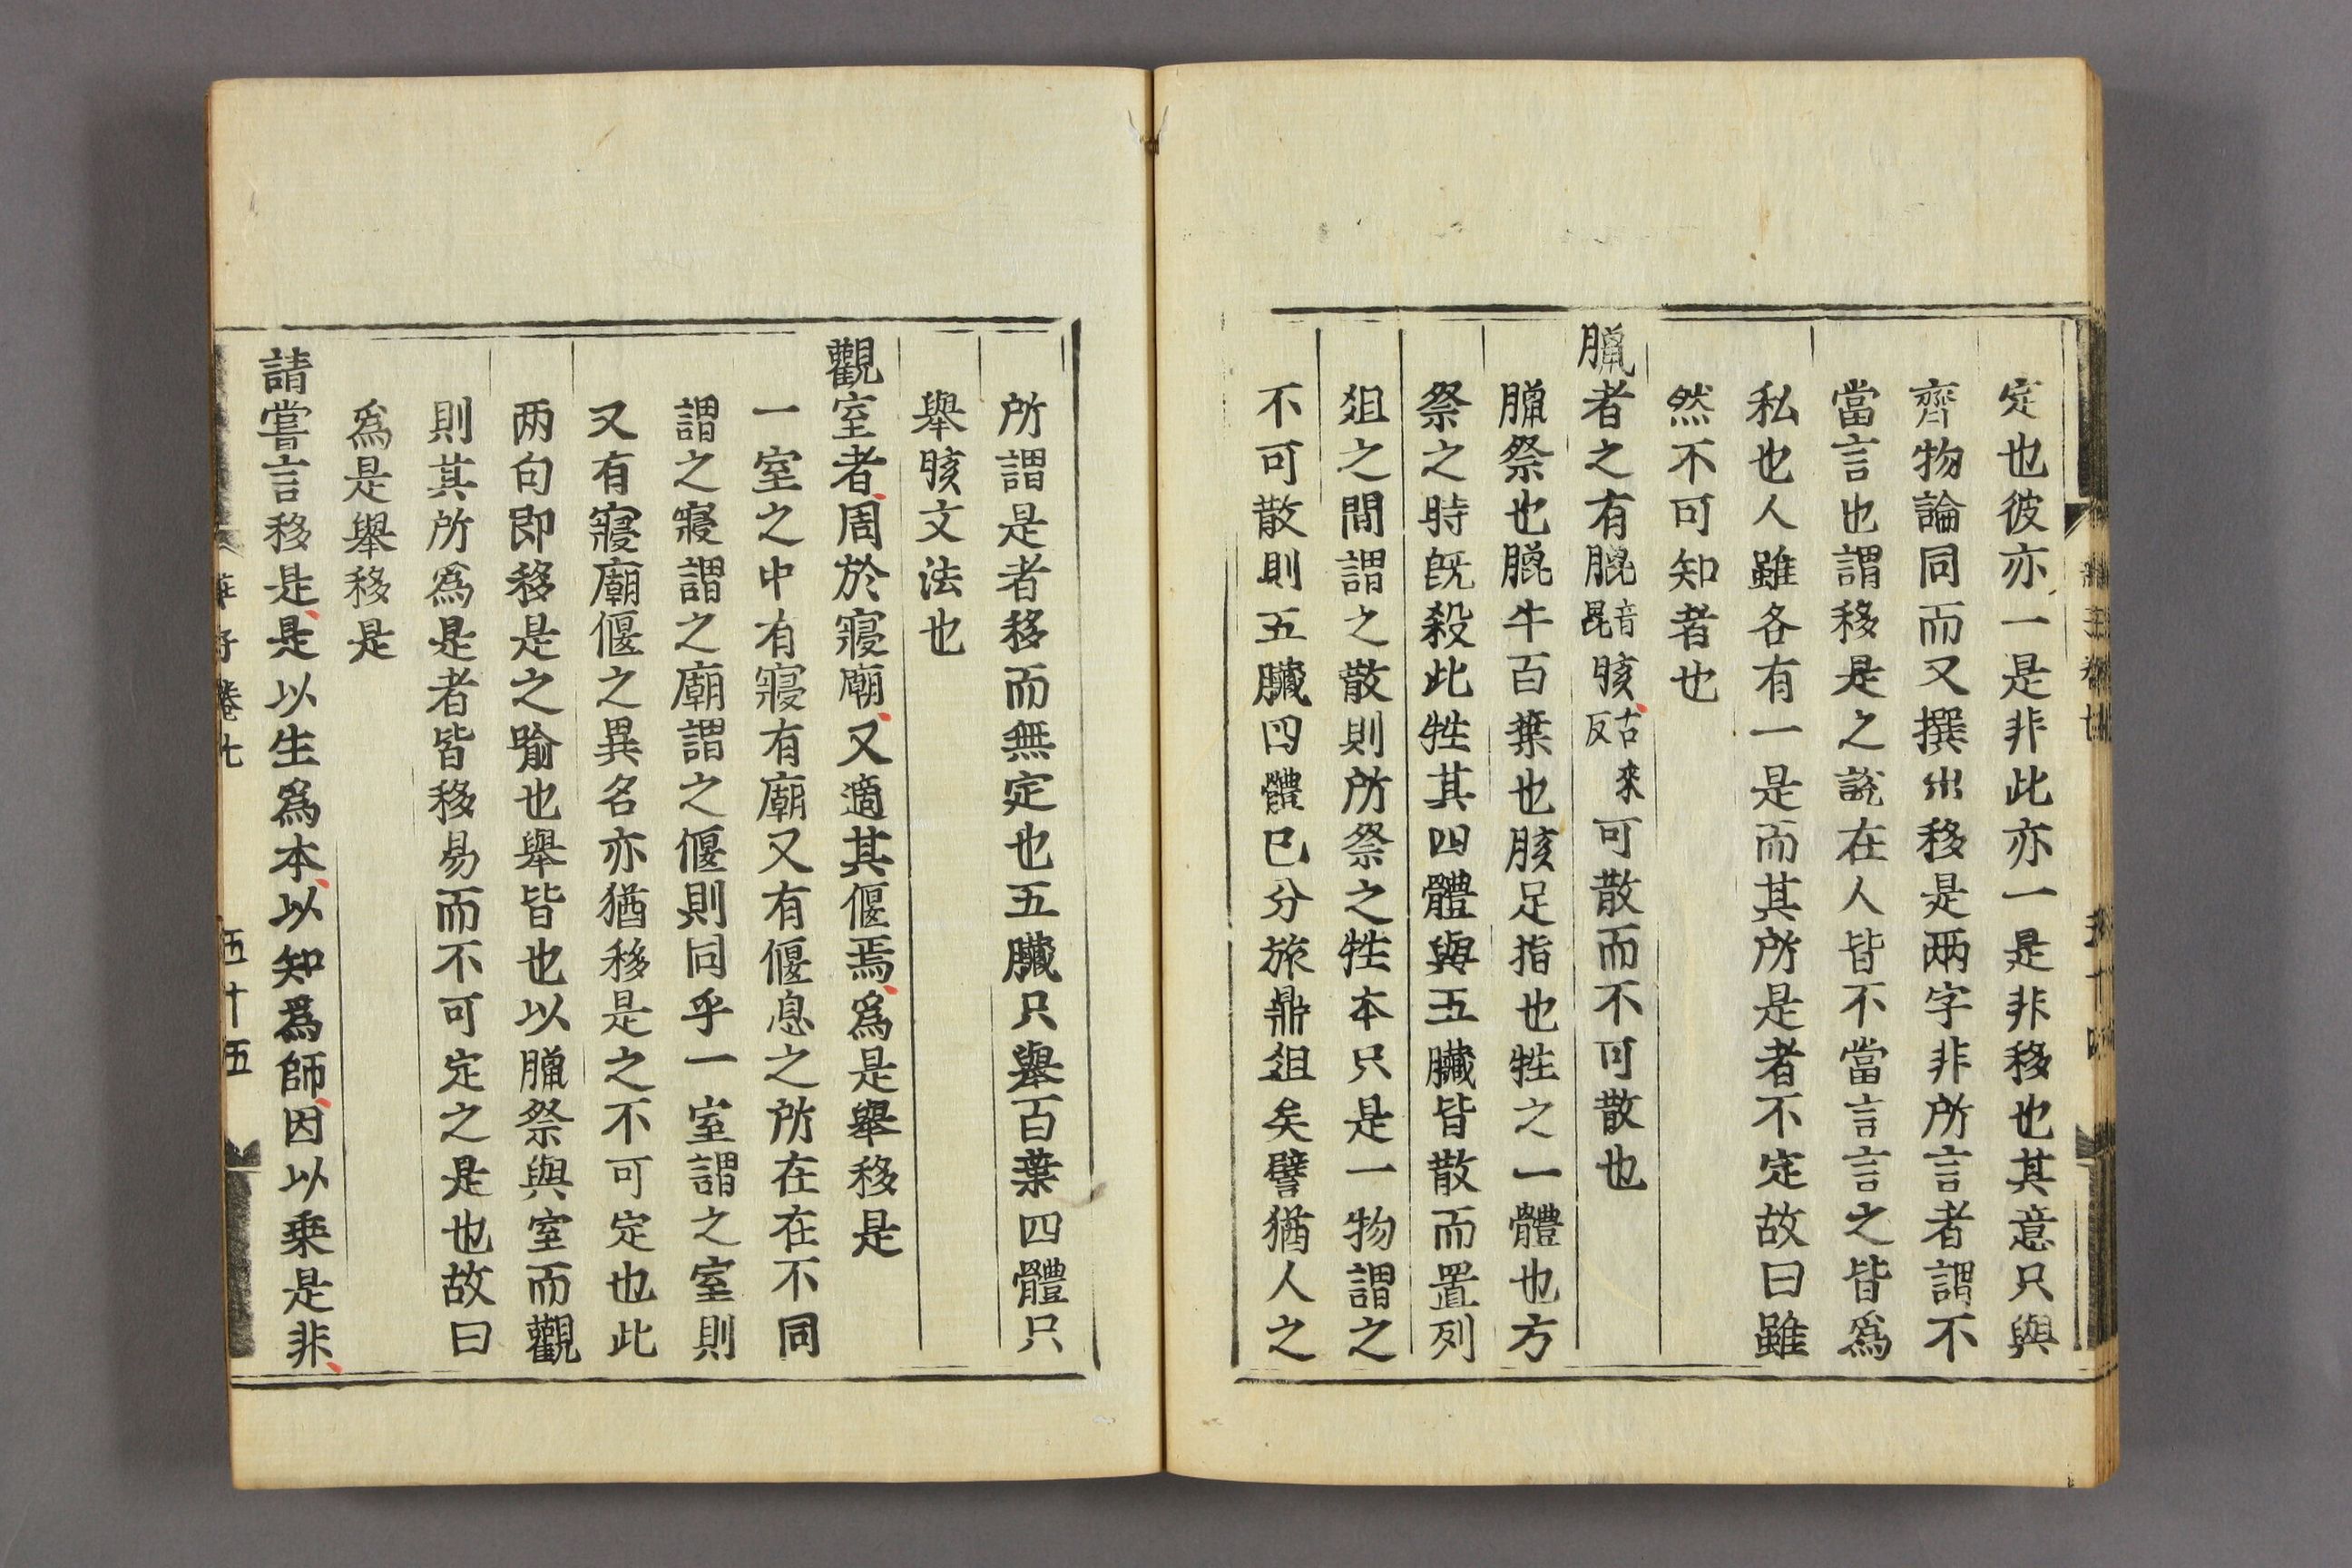 定也彼亦一是非此亦一是非移也其意只與
齊物論同而又撰出移是两字非所言者謂不
當言也謂移是之說在人皆不當言言之皆爲
私也人雖各有一是而其所是者不定故曰雖
然不可知者也
臘者之有膍音昆胲古來反可散而不可散也
臘祭也膍牛百葉也胲足指也牲之一體也方
祭之時旣殺此牲其四體與五臟皆散而置列
俎之間謂之散則所祭之牲本只是一物謂之
不可散則五臟四體已分旅鼎俎矣譬猶人之
所謂是者移而無定也五臟只舉百葉四體只
舉胲文法也
觀室者周於寢廟又適其偃焉爲是舉移是
一室之中有寢有廟又有偃息之所在在不同
謂之寢謂之廟謂之偃則同乎一室謂之室則
又有寢廟偃之異名亦猶移是之不可定也此
两句即移是之喻也舉皆也以臘祭與室而觀
則其所爲是者皆移易而不可定之是也故曰
爲是舉移是
請嘗言移是是以生爲本以知爲師因以乗是非
莊子卷七 五十五